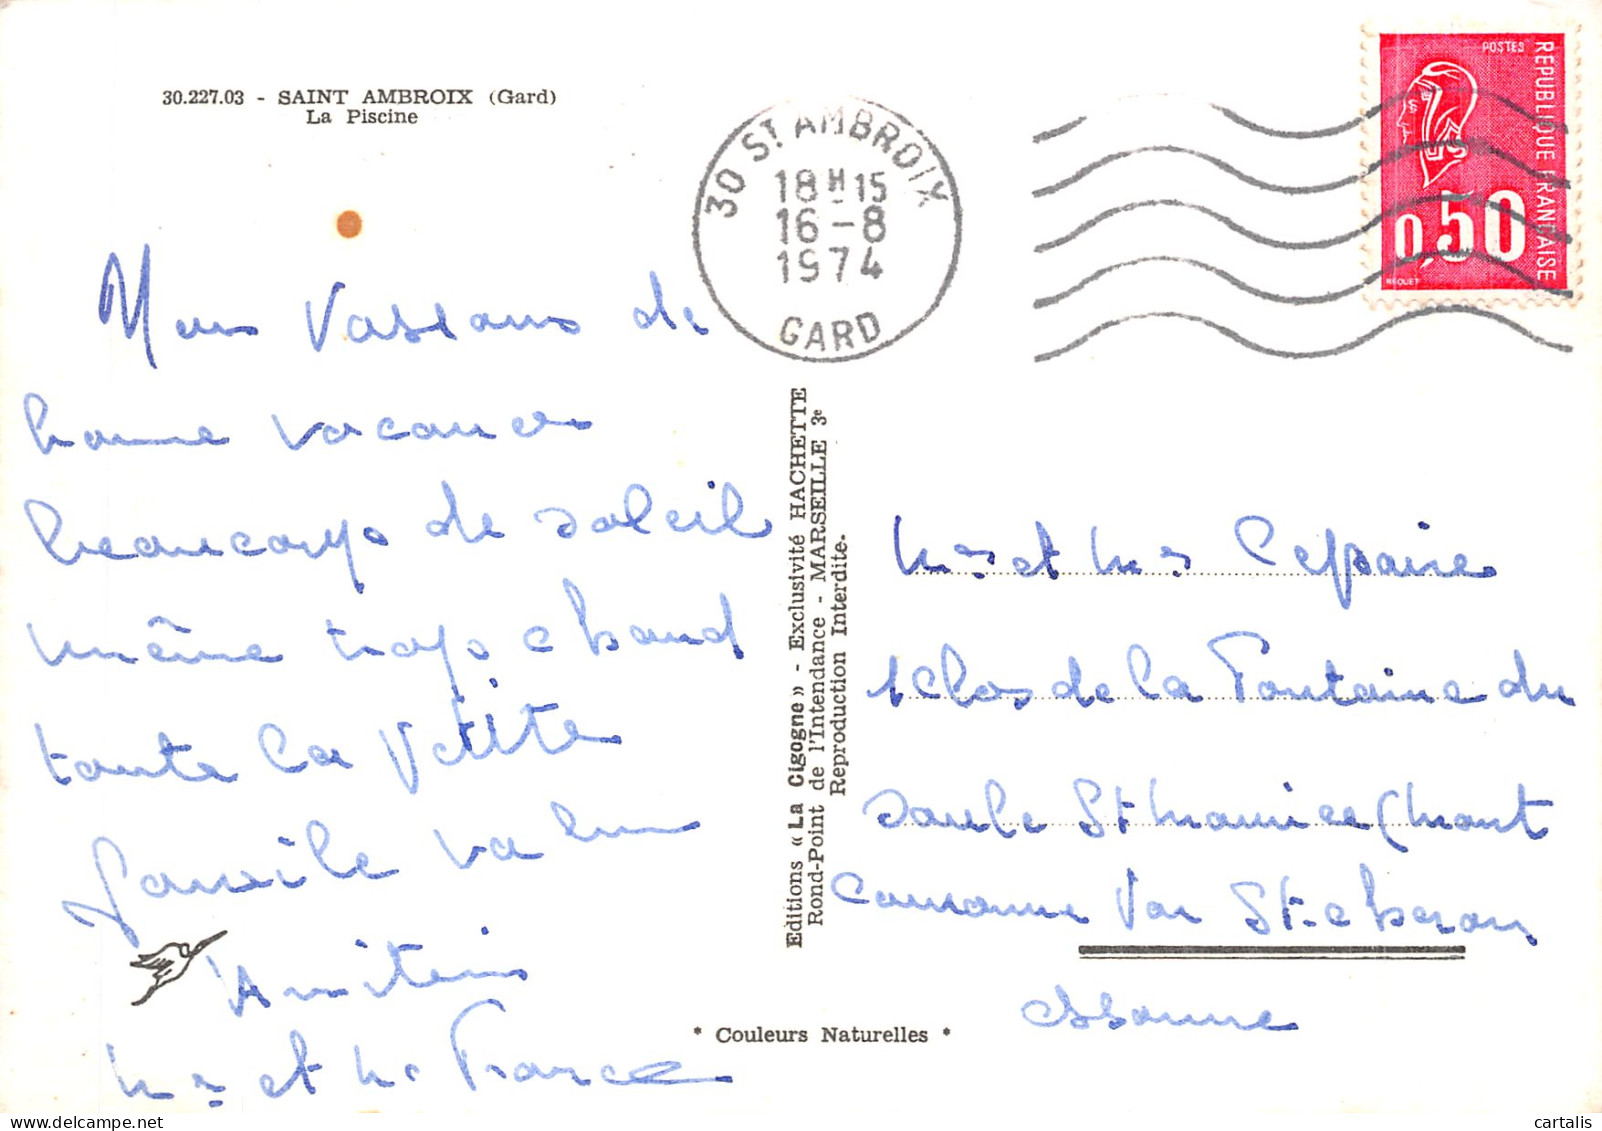 30.227.03 - SAINT AMBROIX (Gard)
La Piscine
30 ST AMBROIX
18 H 15
16 - 8
1974
GARD
POSTES
REPUBLIQUE FRANCAISE
0,50
BEQUET
Nous Passons de
bonne vacances
beaucoup de soleil
même trop chaud
toute la Petite
famille va bien
Amitiés
Mr et Me France
Editions « La Cigogne » - Exclusivité HACHETTE
Rond-Point de l'Intendance - MARSEILLE 3e
Reproduction Interdite.
Mr et Mme Lepaire
1 Clos de la Fontaine du
Saule St Maurice Mont
Couronne Par St-cheron
essonne
* Couleurs Naturelles *
cartalis